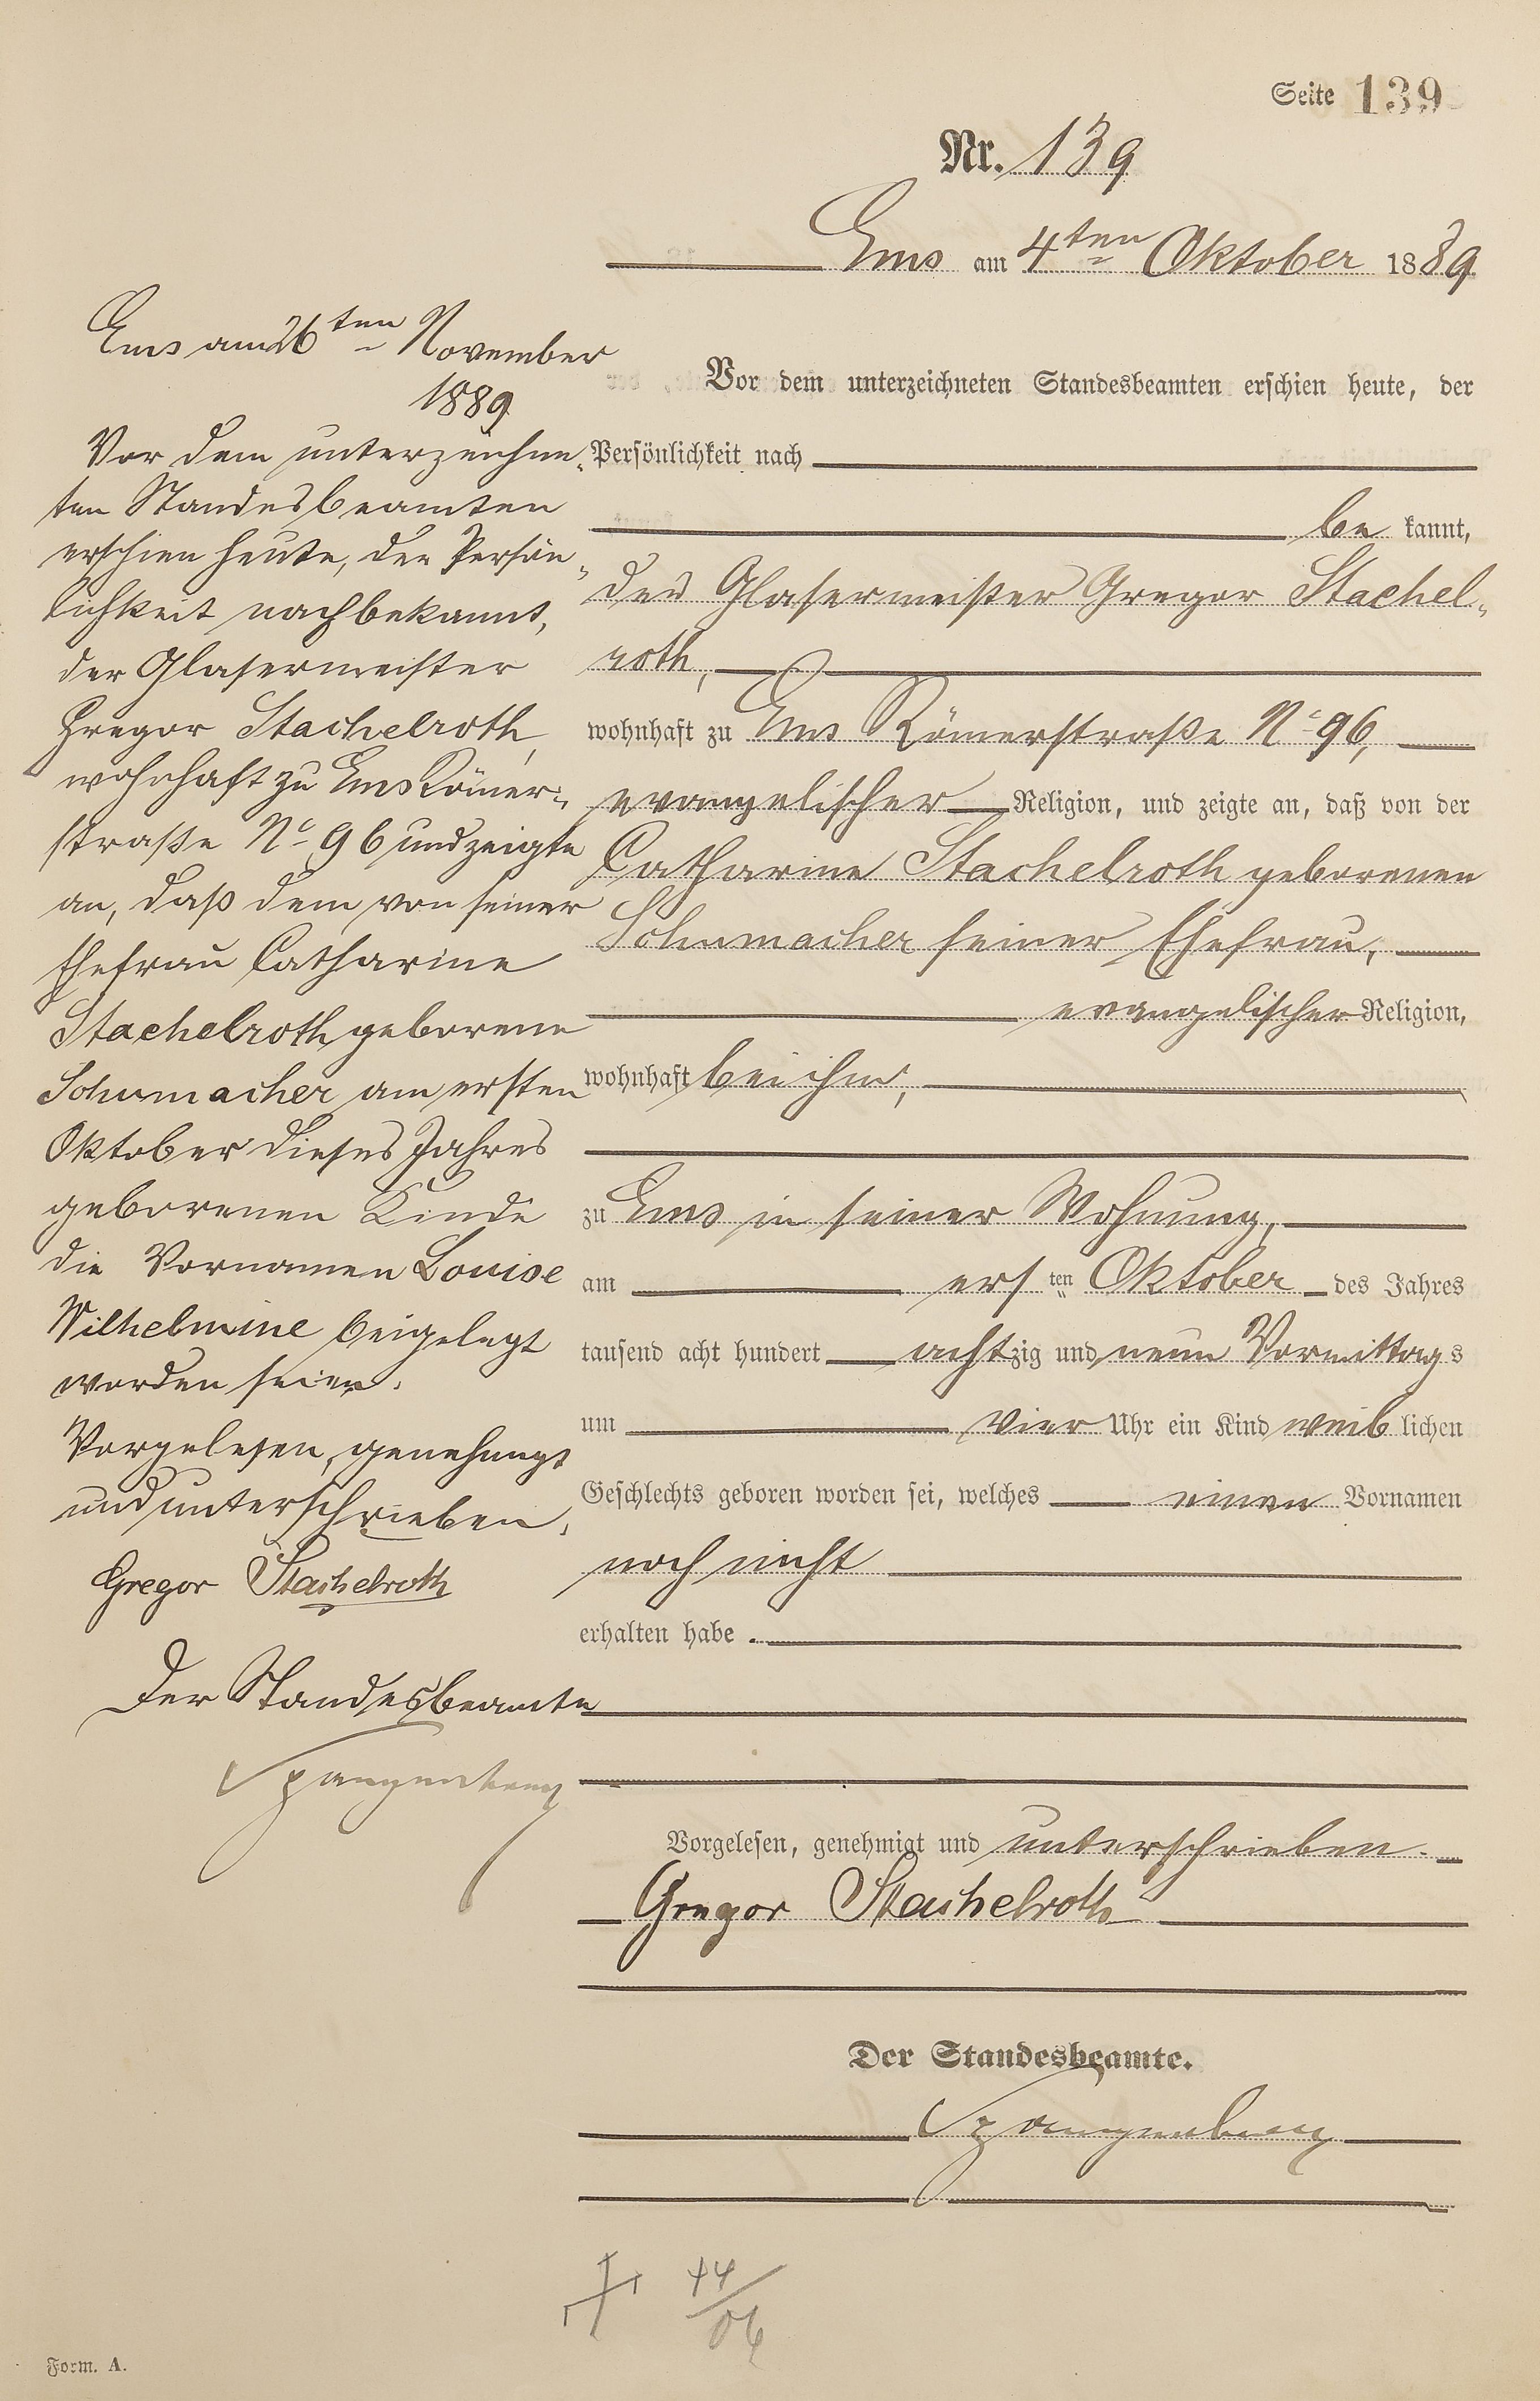 Seite 139
Nr. 139
Ems am 4ten Oktober 1889
Vor dem unterzeichneten Standesbeamten erschien heute, der
Persönlichkeit nach
be kannt,
der Glasermeister Gregor Stachel-
roth,
wohnhaft zu Ems Römerstraße No 96,
evangelischer Religion, und zeigte an, daß von der
Catharine Stachelroth geborenen
Schumacher seiner Ehefrau,
evangelischer Religion,
wohnhaft bei ihm,
zu Ems in seiner Wohnung,
am ersten Oktober des Jahres
tausend acht hundert achtzig und neun Vormittags
um vier Uhr ein Kind weiblichen
Geschlechts geboren worden sei, welches einen Vornamen
noch nicht
erhalten habe.
Vorgelesen, genehmigt und unterschrieben.
Gregor Stachelroth
Der Standesbeamte.
Spangenberg
Ems am 26ten November
1889
Vor dem unterzeichne-
ten Standesbeamten
erschien heute, der Persön-
lichkeit nach bekannt,
der Glasermeister
Gregor Stachelroth,
wohnhaft zu Ems Römer-
straße No 96 und zeigte
an, daß dem von seiner
Ehefrau Catharine
Stachelroth geborene
Schumacher am ersten
Oktober dieses Jahres
geborenen Kinde
die Vornamen Louise
Wilhelmine beigelegt
worden seien.
Vorgelesen, genehmigt
und unterschrieben.
Gregor Stachelroth
Der Standesbeamte
Spangenberg
44/06
Form. A.